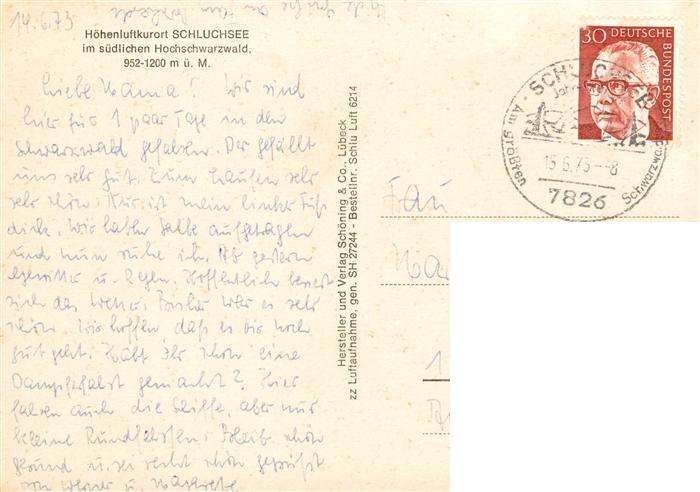 14.6.73
Höhenluftkurort SCHLUCHSEE
im südlichen Hochschwarzwald,
952-1200 m ü. M.
Liebe Mama! Wir sind
hier für 1 paar Tage in den
Schwarzwald gefahren. Der gefällt
uns sehr gut. Zum Laufen sehr
sehr schön. Nur ist mein linker Fuß
dick. Wir haben Salbe aufgetragen
und nun ruhe ich. Ab gestern
Gewitter u. Regen. Hoffentlich bessert
sich das Wetter. Bisher war es sehr
schön. Wir hoffen daß es bis
gut geht. Habt Ihr schon eine
Dampferfahrt gemacht? Hier
fahren auch die Schiffe, aber nur
kleine Rundfahrten. Bleib schön
gesund u. sei recht schön gegrüßt
von Werner u.
Hersteller und Verlag Schöning & Co., Lübeck
zz Luftaufnahme, gen. SH 27244 - Bestellnr. Schlu Luft 6214
30 DEUTSCHE BUNDESPOST
SCHLUCHSEE
Am größten
Schwarzwa
15.6.73-8
7826
Frau
1